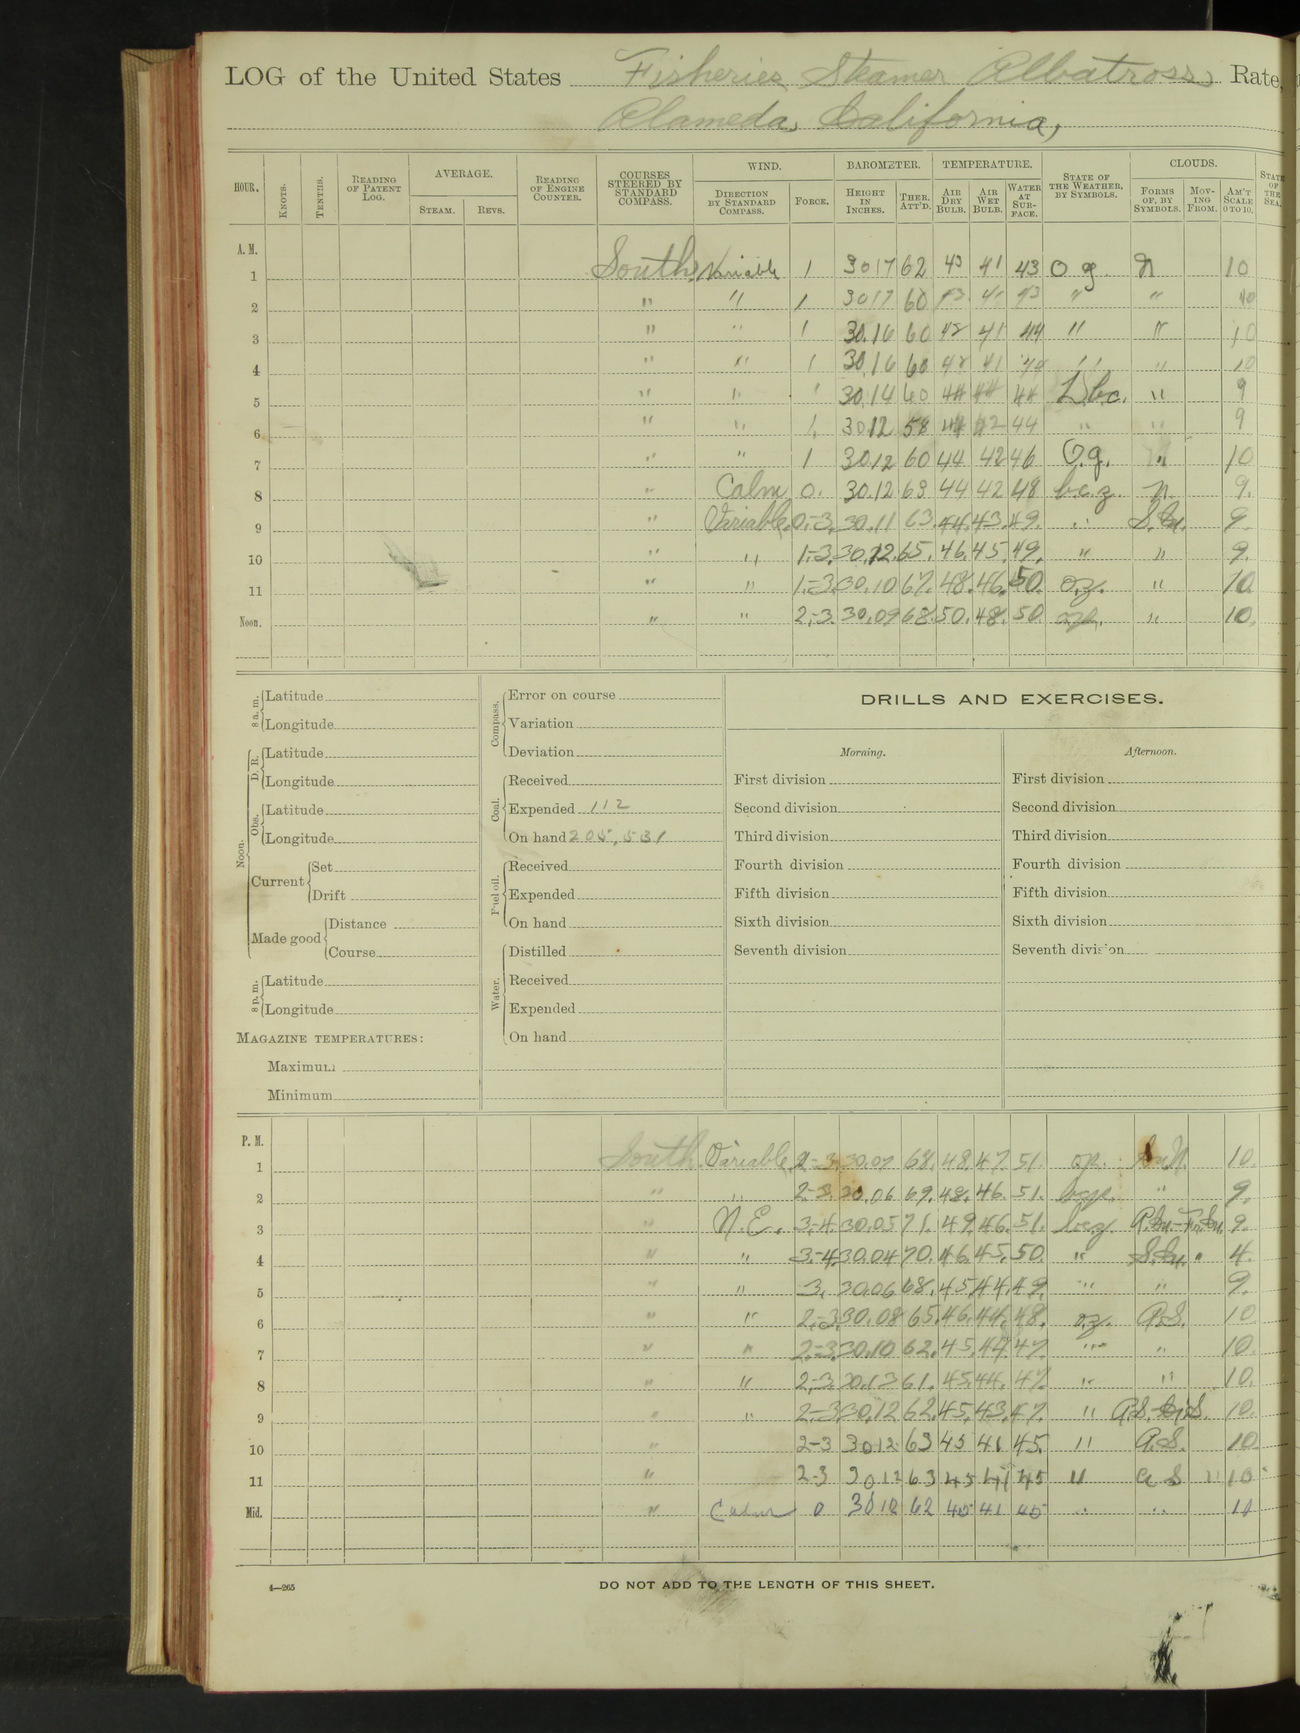 LOG of the United States Fisheries Steamer Albatross, Rate,
Alameda, California,
HOUR. KNOTS. TENTHS. READING OF PATENT LOG. AVERAGE. STEAM. REVS. READING OF ENGINE COUNTER. COURSES STEERED BY STANDARD COMPASS. WIND. DIRECTION BY STANDARD COMPASS. FORCE. BAROMETER. HEIGHT IN INCHES. THER. ATT'D. TEMPERATURE. AIR DRY BULB. AIR WET BULB. WATER AT SURFACE. STATE OF THE WEATHER, BY SYMBOLS. CLOUDS. FORMS OF, BY SYMBOLS. MOVING FROM. AM'T SCALE 0 TO 10. STATE OF THE SEA.
A. M.
1 South, Variable 1 30 17 62 43 41 43 O g. N 10
2 " " 1 30 17 60 43 41 43 " " 10
3 " " 1 30.16 60 42 41 44 " " 10
4 " " 1 30.16 60 42 41 " " 10
5 " " ' 30.14 60 44 44 b.c. " 9
6 " " 1. 30.12 58 44 42 44 " " 9
7 " " 1 30.12 60 44 42 46 O.g. " 10
8 " Calm 0. 30.12 63 44 42 48 b.c.z. N. 9.
9 " Variable. 0.-3. 30.11 63. 44. 43. 49. " S.Cu. 9.
10 " " 1.-3. 30.12. 65. 46. 45. 49. " " 9.
11 " " 1.-3. 30.10 67. 48. 46. 50. o.z. " 10.
Noon. " " 2.-3. 30.09 68. 50. 48. 50. " 10.
8 a. m. Latitude
Longitude
Noon. D. R. Latitude
Longitude
Obs. Latitude
Longitude
Current Set
Drift
Made good Distance
Course
8 p. m. Latitude
Longitude
MAGAZINE TEMPERATURES:
Maximum
Minimum
Compass. Error on course
Variation
Deviation
Coal. Received
Expended 112
On hand 205,531
Fuel oil. Received
Expended
On hand
Water. Distilled
Received
Expended
On hand
DRILLS AND EXERCISES.
Morning. Afternoon.
First division First division
Second division Second division
Third division Third division
Fourth division Fourth division
Fifth division Fifth division
Sixth division Sixth division
Seventh division Seventh division
P. M.
1 South. Variable 2-3 30.07 68. 48. 47. 51. op. 10.
2 " " 2-3. 30.06 69. 48. 46. 51. " 9.
3 " N.E. 3.-4. 30.05 71. 49. 46. 51. b.c.z. A.Cu.-Fr.Cu. 9.
4 " " 3.-4. 30.04 70. 46. 45. 50. " S.Cu. " 4.
5 " " 3. 30.06 68. 45. 44. 49. " " 9.
6 " " 2.-3. 30.08 65. 46. 44. 48. o.z. A.S. 10
7 " " 2.-3. 30.10 62. 45. 44. 47. " " 10.
8 " " 2.-3. 30.13 61. 45. 44. 47. " " 10.
9 " " 2.-3. 30.12 62. 45. 43. 47. " A.S.-Ci.S. 10.
10 " 2-3 30 12 63 45 41 45. " A.S. 10.
11 " 2-3 30 12 63 45 41 45 " A S " 10
Mid. " Calm 0 30 10 62 45 41 45 " " 10
4—265
DO NOT ADD TO THE LENGTH OF THIS SHEET.